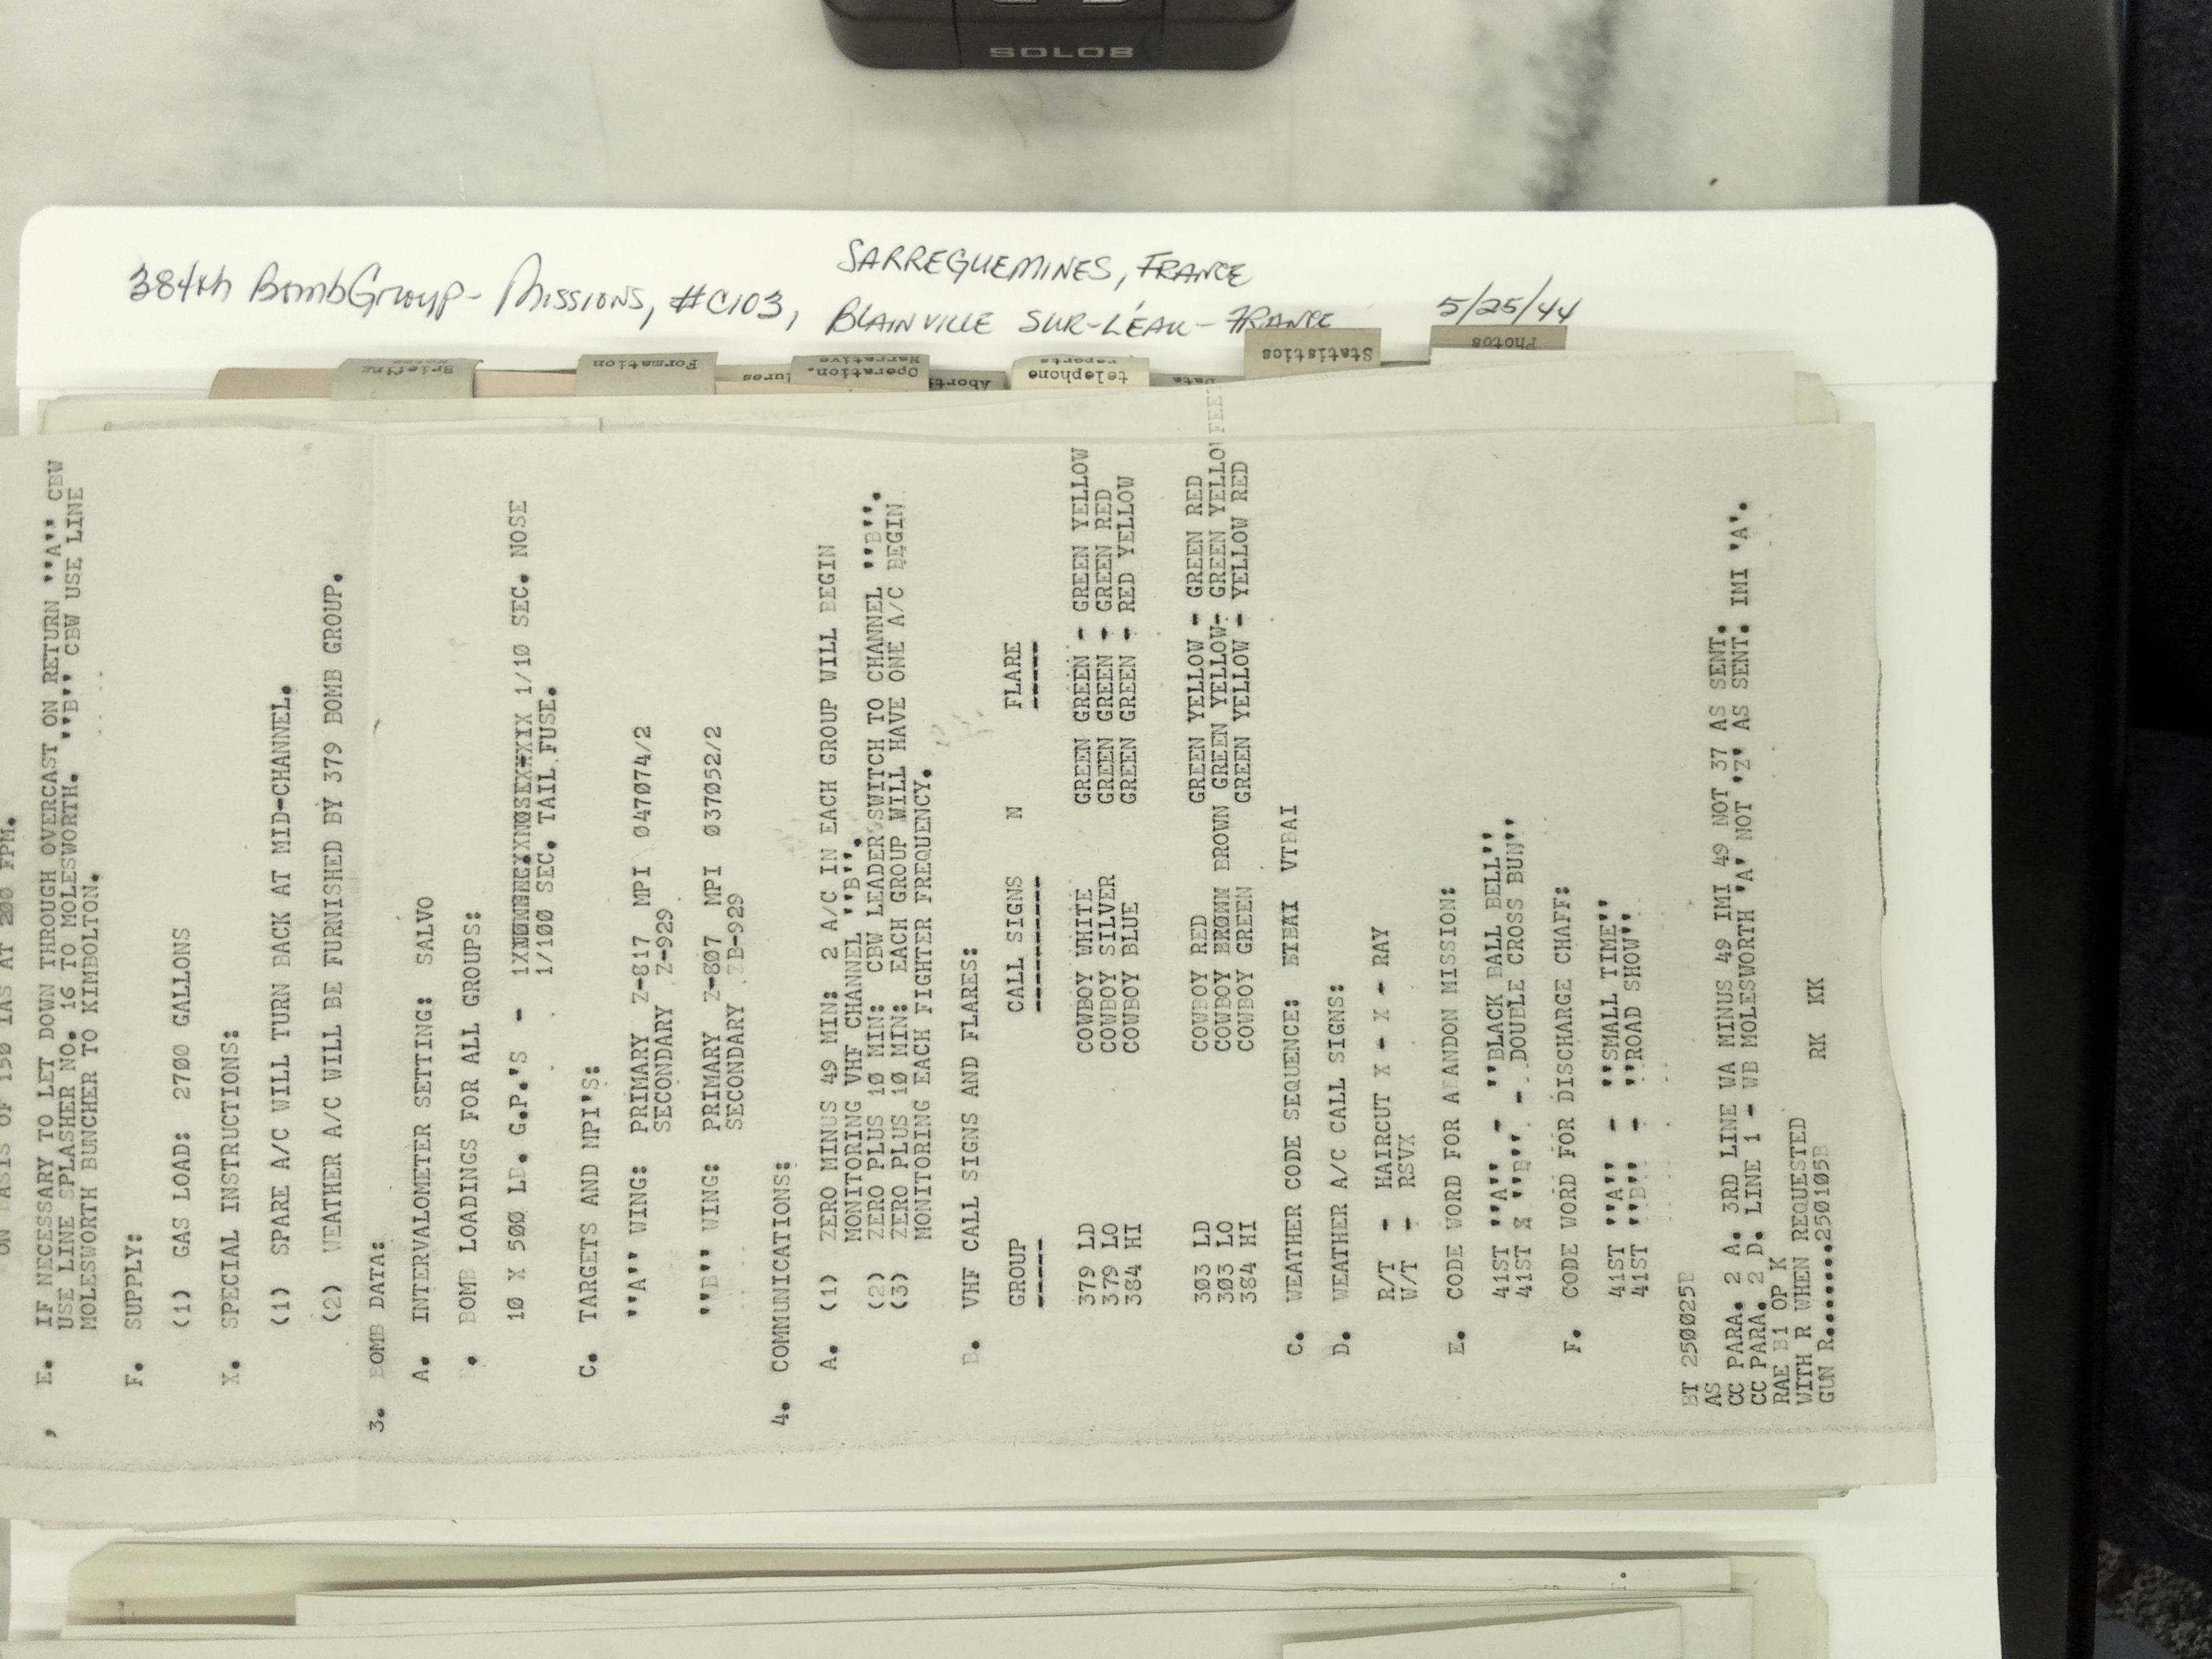 SOLO8
SARREGUEMINES, FRANCE
384th BombGroup - Missions, #C103, BLAINVILLE SUR-L'EAU - FRANCE 5/25/44
Briefing
Formation
Operation.
Narrative
telephone
reports
Data
Statistics
Photos
ON BASIS OF 150 IAS AT 200 FPM.
E. IF NECESSARY TO LET DOWN THROUGH OVERCAST ON RETURN ''A'' CBW
USE LINE SPLASHER NO. 16 TO MOLESWORTH. ''B'' CBW USE LINE
MOLESWORTH BUNCHER TO KIMBOLTON.
F. SUPPLY:
(1) GAS LOAD: 2700 GALLONS
X. SPECIAL INSTRUCTIONS:
(1) SPARE A/C WILL TURN BACK AT MID-CHANNEL.
(2) WEATHER A/C WILL BE FURNISHED BY 379 BOMB GROUP.
3. BOMB DATA:
A. INTERVALOMETER SETTING: SALVO
B. BOMB LOADINGS FOR ALL GROUPS:
10 X 500 LB. G.P.'S - 1/10 SEC. NOSE
1/100 SEC. TAIL FUSE.
C. TARGETS AND MPI'S:
''A'' WING: PRIMARY Z-817 MPI 047074/2
SECONDARY Z-929
''B'' WING: PRIMARY Z-807 MPI 037052/2
SECONDARY ZB-929
4. COMMUNICATIONS:
A. (1) ZERO MINUS 49 MIN: 2 A/C IN EACH GROUP WILL BEGIN
MONITORING VHF CHANNEL ''B''.
(2) ZERO PLUS 10 MIN: CBW LEADER SWITCH TO CHANNEL ''B''.
(3) ZERO PLUS 10 MIN: EACH GROUP WILL HAVE ONE A/C BEGIN
MONITORING EACH FIGHTER FREQUENCY.
B. VHF CALL SIGNS AND FLARES:
GROUP CALL SIGNS N FLARE
----- ---------- -----
379 LD COWBOY WHITE GREEN GREEN - GREEN YELLOW
379 LO COWBOY SILVER GREEN GREEN - GREEN RED
384 HI COWBOY BLUE GREEN GREEN - RED YELLOW
303 LD COWBOY RED GREEN YELLOW - GREEN RED
303 LO COWBOY BROWN BROWN GREEN YELLOW- GREEN YELLO FEET
384 HI COWBOY GREEN GREEN YELLOW - YELLOW RED
C. WEATHER CODE SEQUENCE: VTBAI
D. WEATHER A/C CALL SIGNS:
R/T - HAIRCUT X - X - RAY
W/T - RSVX
E. CODE WORD FOR ABANDON MISSION:
41ST ''A'' - ''BLACK BALL BELL''
41ST X ''B'' - DOUBLE CROSS BUN''
F. CODE WORD FOR DISCHARGE CHAFF:
41ST ''A'' - ''SMALL TIME''
41ST ''B'' - ''ROAD SHOW''
BT 250025B
AS
CC PARA. 2 A. 3RD LINE WA MINUS 49 IMI 49 NOT 37 AS SENT.
CC PARA. 2 D. LINE 1 - WB MOLESWORTH 'A' NOT 'Z' AS SENT. IMI 'A'.
RAE B1 OP K
WITH R WHEN REQUESTED
GUN R........250105B RK KK